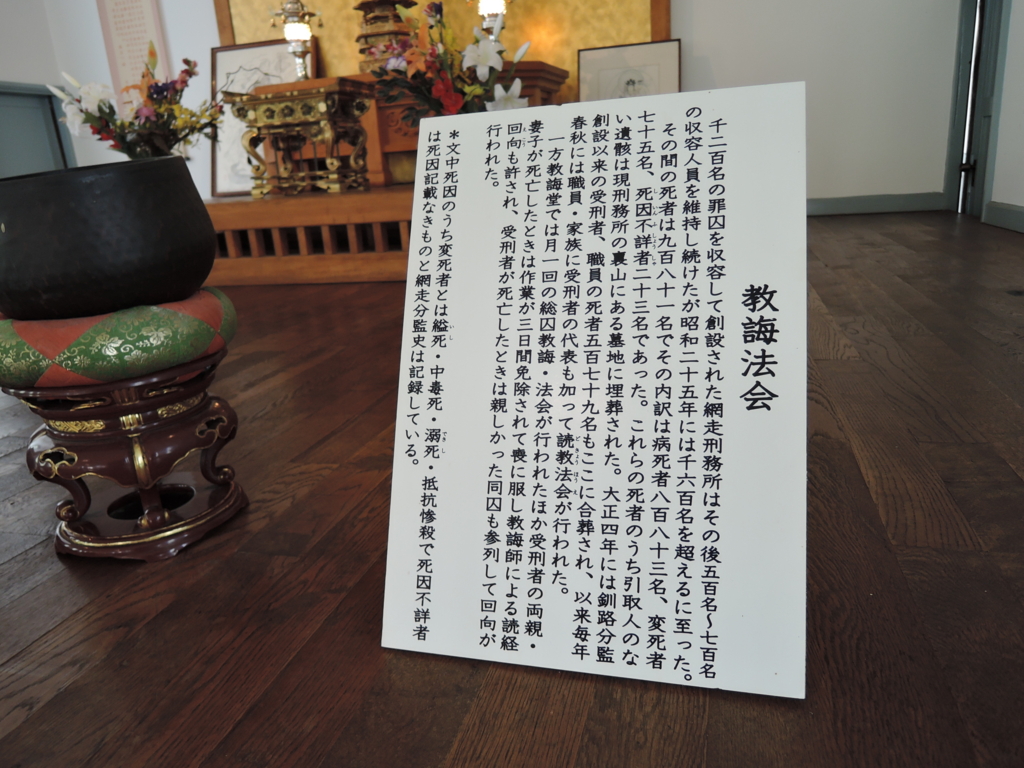 教誨法会
千二百名の罪囚を収容して創設された網走刑務所はその後五百名～七百名
の収容人員を維持し続けたが昭和二十五年には千六百名を超えるに至った。
その間の死者は九百八十一名でその内訳は病死者八百八十三名、変死者
七十五名、死因不詳者二十三名であった。これらの死者のうち引取人のな
い遺骸は現刑務所の裏山にある墓地に埋葬された。大正四年には釧路分監
創設以来の受刑者、職員の死者五百七十九名もここに合葬され、以来毎年
春秋には職員・家族に受刑者の代表も加って読教法会が行われた。
一方教誨堂では月一回の総囚教誨・法会が行われたほか受刑者の両親・
妻子が死亡したときは作業が三日間免除されて喪に服し教誨師による読経
回向も許され、受刑者が死亡したときは親しかった同囚も参列して回向が
行われた。
＊文中死因のうち変死者とは縊死・中毒死・溺死・抵抗惨殺で死因不詳者
は死因記載なきものと網走分監史は記録している。